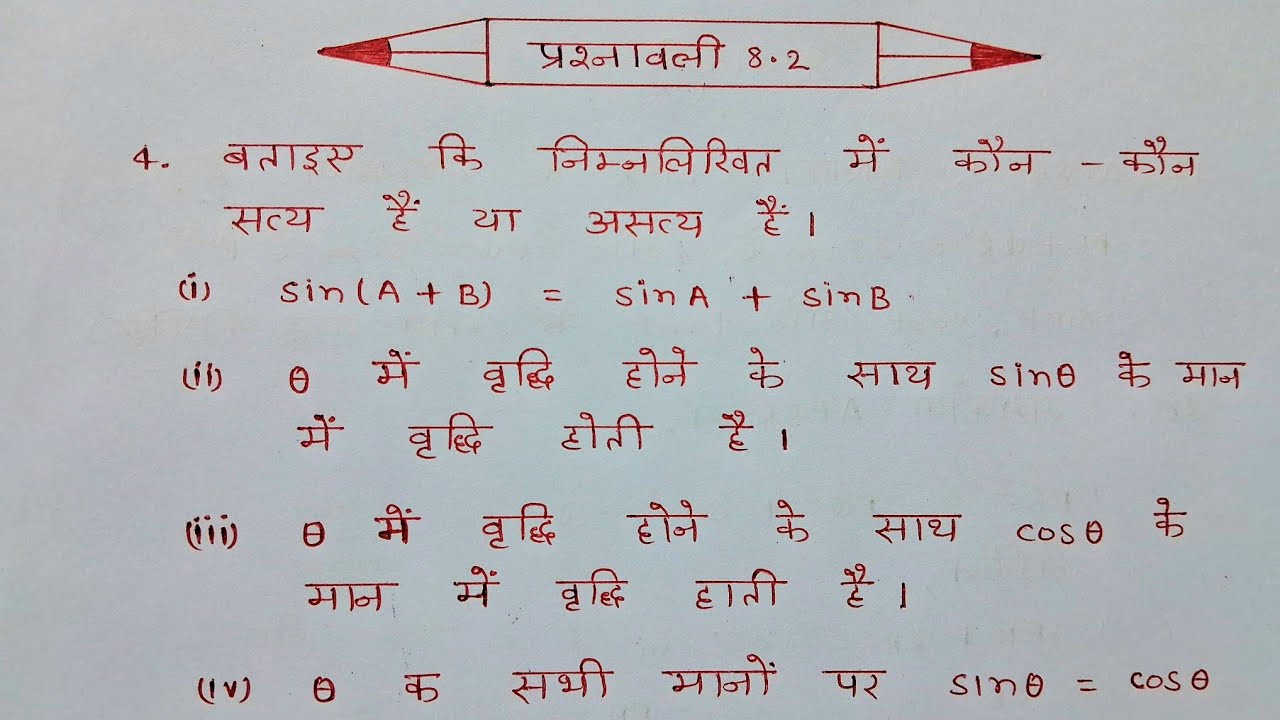 प्रश्नावली 8.2
4. बताइए कि निम्नलिखित में कौन - कौन
सत्य हैं या असत्य हैं।
(i) sin(A + B) = sinA + sinB.
(ii) θ में वृद्धि होने के साथ sinθ के मान
में वृद्धि होती है।
(iii) θ में वृद्धि होने के साथ cosθ के
मान में वृद्धि हाती है।
(iv) θ क सभी मानों पर sinθ = cosθ